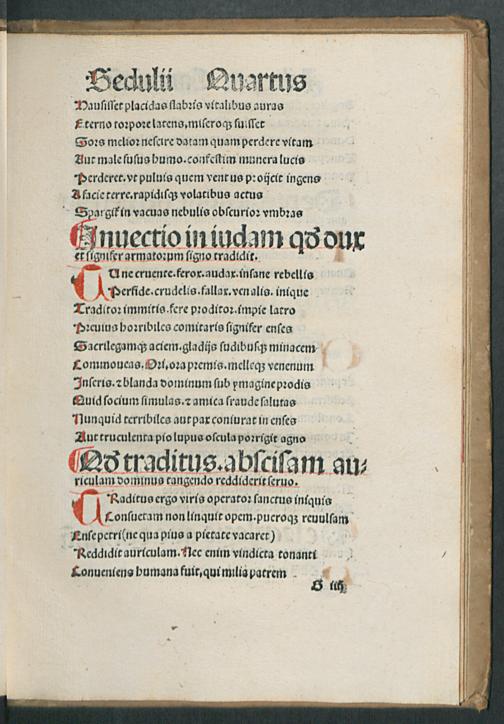 Sedulii Quartus
Hausisset placidas flabris vitalibus auras
Eterno torpore latens, miseroqꝫ fuisset
Sors melior nescire datam quam perdere vitam
Aut male fusus humo. confestim munera lucis
Perderet. vt puluis quem ventus proijcit ingens
A facie terre. rapidisqꝫ volatibus actus
Spargit̃ in vacuas nebulis obscurior vmbras
Inuectio in iudam qđ dux
et signifer armatorum signo tradidit.
TUne cruente. ferox. audax. insane rebellis
Perfide. crudelis. fallax. venalis. inique
Traditor immitis. fere proditor. impie latro
Preuius horribiles comitaris signifer enses
Sacrilegamqꝫ aciem. gladijs sudibusqꝫ minacem
Commoueas. Ori, ora premis. melleqꝫ venenum
Inseris. ⁊ blanda dominum sub ymagine prodis
Quid socium simulas. ⁊ amica fraude salutas
Nunquid terribiles aut pax coniurat in enses
Aut truculenta pio lupus oscula porrigit agno
Qđ traditus. abscisam au⸗
riculam dominus tangendo reddiderit seruo.
TRaditus ergo viris operator sanctus iniquis
Consuetam non linquit opem. pueroqꝫ reuulsam
Ense petri (ne qua pius a pietate vacaret)
Reddidit auriculam. Nec enim vindicta tonanti
Conueniens humana fuit, qui milia patrem
G iiij